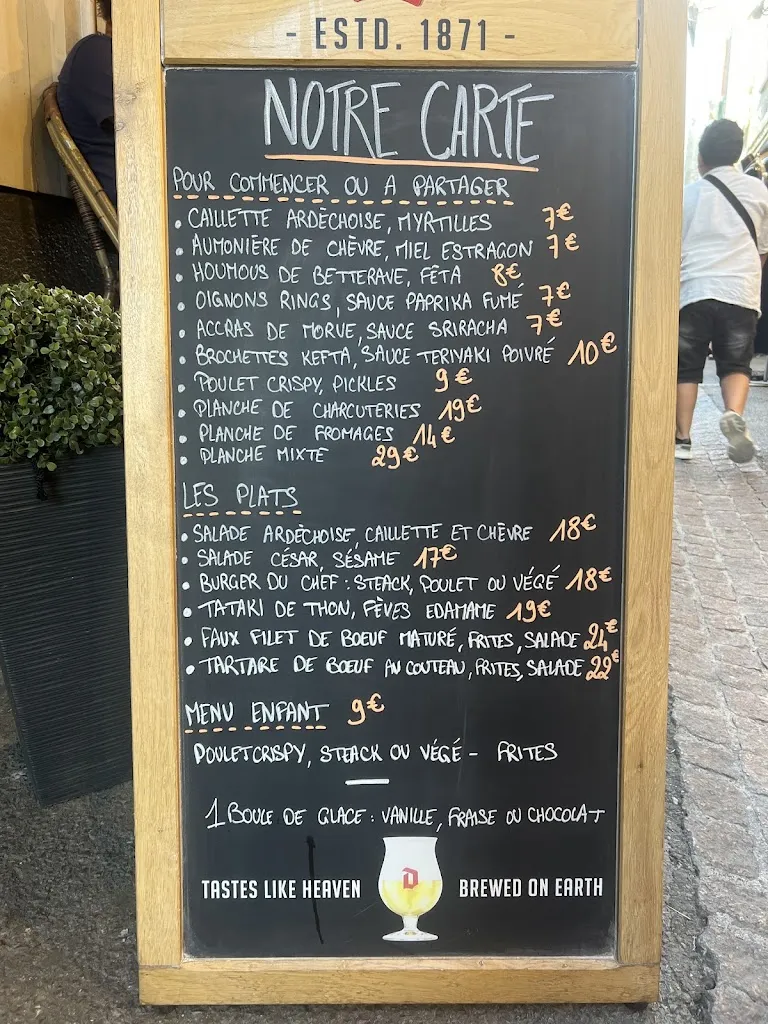 - ESTD. 1871 -
NOTRE CARTE
POUR COMMENCER OU A PARTAGER
• CAILLETTE ARDÈCHOISE, MYRTILLES 7€
• AUMONIÈRE DE CHÈVRE, MIEL ESTRAGON 7€
• HOUMOUS DE BETTERAVE, FÊTA 8€
• OIGNONS RINGS, SAUCE PAPRIKA FUMÉ 7€
• ACCRAS DE MORUE, SAUCE SRIRACHA 7€
• BROCHETTES KEFTA, SAUCE TERIYAKI POIVRÉ 10€
• POULET CRISPY, PICKLES 9€
• PLANCHE DE CHARCUTERIES 19€
• PLANCHE DE FROMAGES 14€
• PLANCHE MIXTE 29€
LES PLATS
• SALADE ARDÈCHOISE, CAILLETTE ET CHÈVRE 18€
• SALADE CÉSAR, SÉSAME 17€
• BURGER DU CHEF : STEACK, POULET OU VÉGÉ 18€
• TATAKI DE THON, FÈVES EDAMAME 19€
• FAUX FILET DE BOEUF MATURÉ, FRITES, SALADE 24€
• TARTARE DE BOEUF AU COUTEAU, FRITES, SALADE 22€
MENU ENFANT 9€
POULET CRISPY, STEACK OU VÉGÉ - FRITES
1 BOULE DE GLACE : VANILLE, FRAISE OU CHOCOLAT
TASTES LIKE HEAVEN BREWED ON EARTH